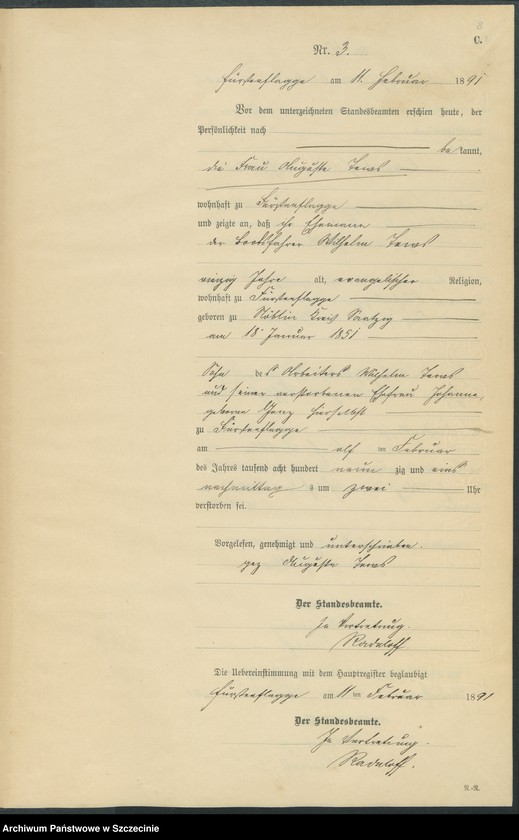 C.
Nr. 3.
Fürstenflagge am 11. Februar 1891
Vor dem unterzeichneten Standesbeamten erschien heute, der
Persönlichkeit nach
bekannt,
die Frau Auguste Tews
wohnhaft zu Fürstenflagge
und zeigte an, daß ihr Ehemann
der Bootsfahrer Wilhelm Tews
vierzig Jahre alt, evangelischer Religion,
wohnhaft zu Fürstenflagge
geboren zu Nöblin Kreis Saatzig
am 18 Januar 1851
Sohn des Arbeiters Wilhelm Tews
und seiner verstorbenen Ehefrau Johanna,
geborene Genz hierselbst
zu Fürstenflagge
am elf ten Februar
des Jahres tausend acht hundert neunzig und eins
nachmittags um zwei Uhr
verstorben sei.
Vorgelesen, genehmigt und unterschrieben.
gez Auguste Tews
Der Standesbeamte.
In Vertretung.
Raduloff
Die Uebereinstimmung mit dem Hauptregister beglaubigt
Fürstenflagge am 11 ten Februar 1891
Der Standesbeamte.
In Vertretung.
Raduloff.
R.-R.
Archiwum Państwowe w Szczecinie